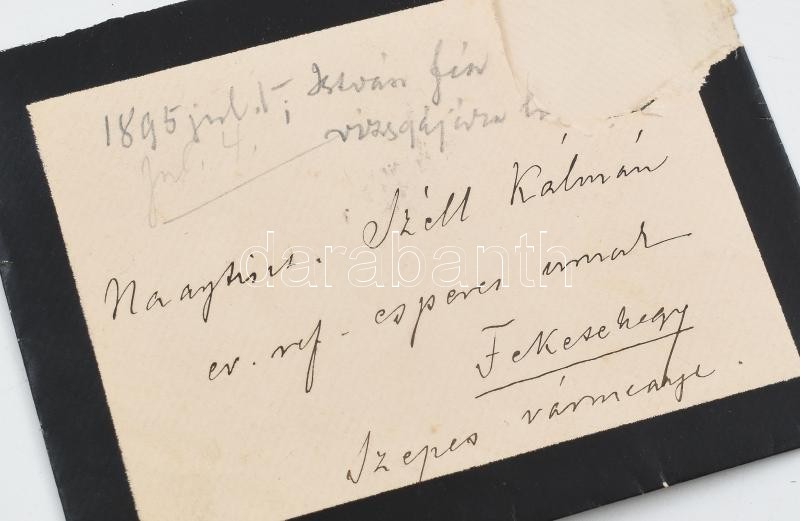 1895 jul. 1; István fia
jul. 4. vizsgájára
Nagytisz. Széll Kálmán
ev. ref. esperes urnak
Feketehegy
Szepes vármegye.
darabanth